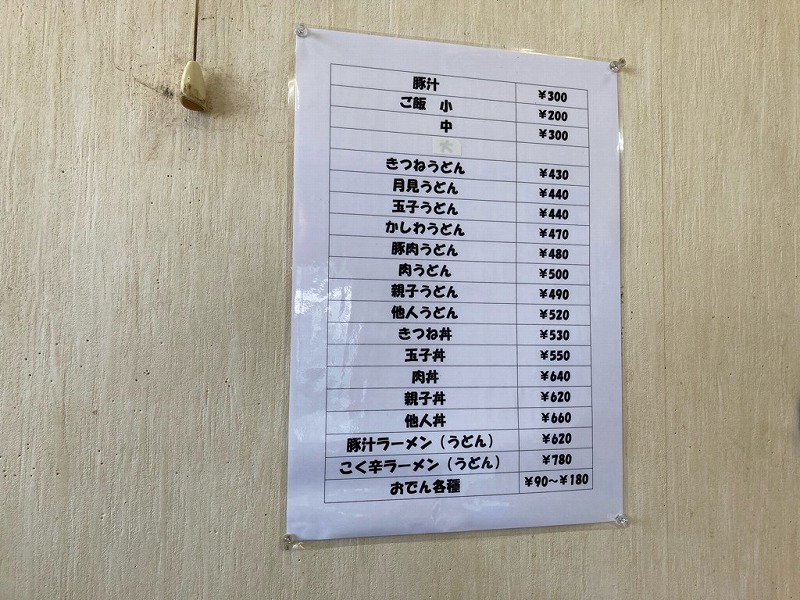 豚汁 ¥300
ご飯 小 ¥200
中 ¥300
大
きつねうどん ¥430
月見うどん ¥440
玉子うどん ¥440
かしわうどん ¥470
豚肉うどん ¥480
肉うどん ¥500
親子うどん ¥490
他人うどん ¥520
きつね丼 ¥530
玉子丼 ¥550
肉丼 ¥640
親子丼 ¥620
他人丼 ¥660
豚汁ラーメン（うどん） ¥620
こく辛ラーメン（うどん） ¥780
おでん各種 ¥90～¥180